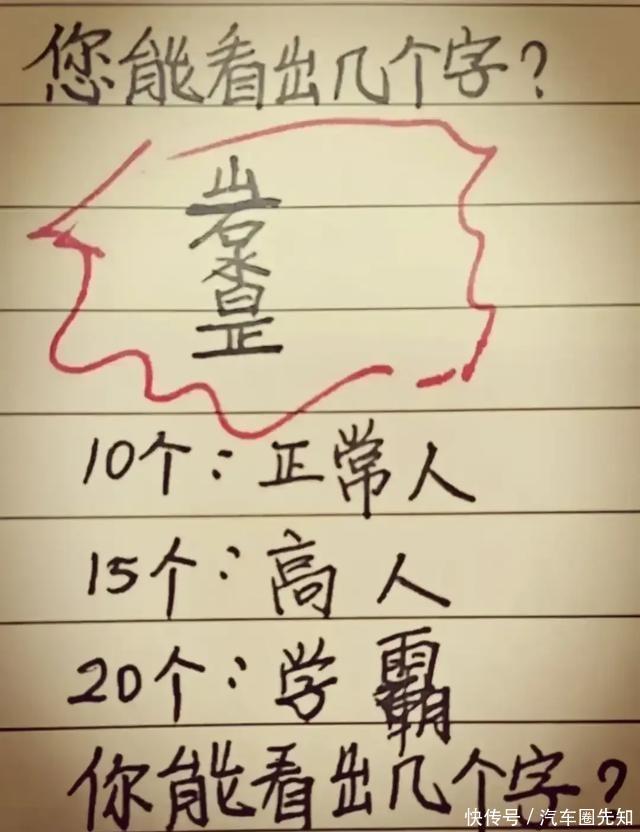 您能看出几个字?
山
石
水
日
正
10个:正常人
15个:高人
20个:学霸
你能看出几个字?
快传号/汽车圈先知